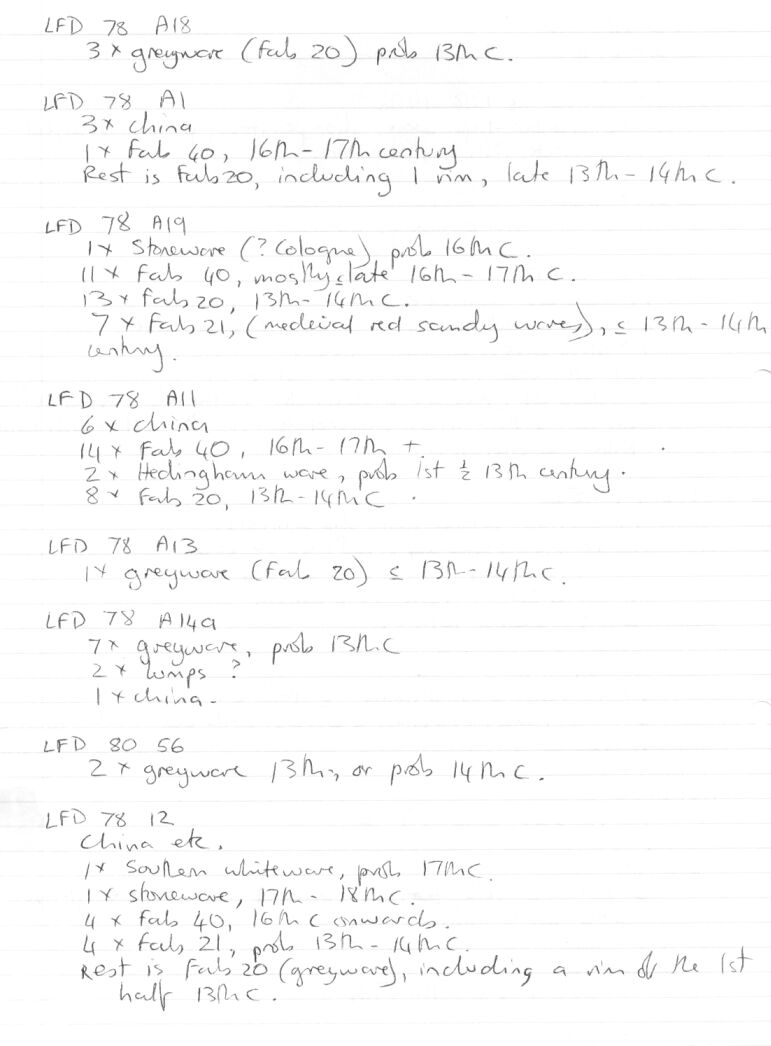 LFD 78 A18
3 x greyware (Fab 20) prob 13th C.
LFD 78 A1
3 x china
1 x Fab 40, 16th - 17th century
Rest is Fab 20, including 1 rim, late 13th - 14th C.
LFD 78 A19
1 x Stoneware (? Cologne), prob 16th C.
11 x Fab 40, mostly late 16th - 17th C.
13 x Fab 20, 13th - 14th C.
7 x Fab 21, (medeival red sandy wares), c 13th - 14th
century.
LFD 78 A11
6 x china
14 x Fab 40, 16th - 17th +
2 x Hedingham ware, prob 1st ½ 13th century.
8 x Fab 20, 13th - 14th C.
LFD 78 A13
1 x greyware (Fab 20) c 13th - 14th C.
LFD 78 A14a
7 x greyware, prob 13th C
2 x lumps ?
1 x china -
LFD 80 56
2 x greyware 13th, or prob 14th C.
LFD 78 12
China etc.
1 x Southern whiteware, prob 17th C.
1 x stoneware, 17th - 18th C.
4 x Fab 40, 16th C onwards.
4 x Fab 21, prob 13th - 14th C.
Rest is Fab 20 (greyware), including a rim of the 1st
half 13th C.